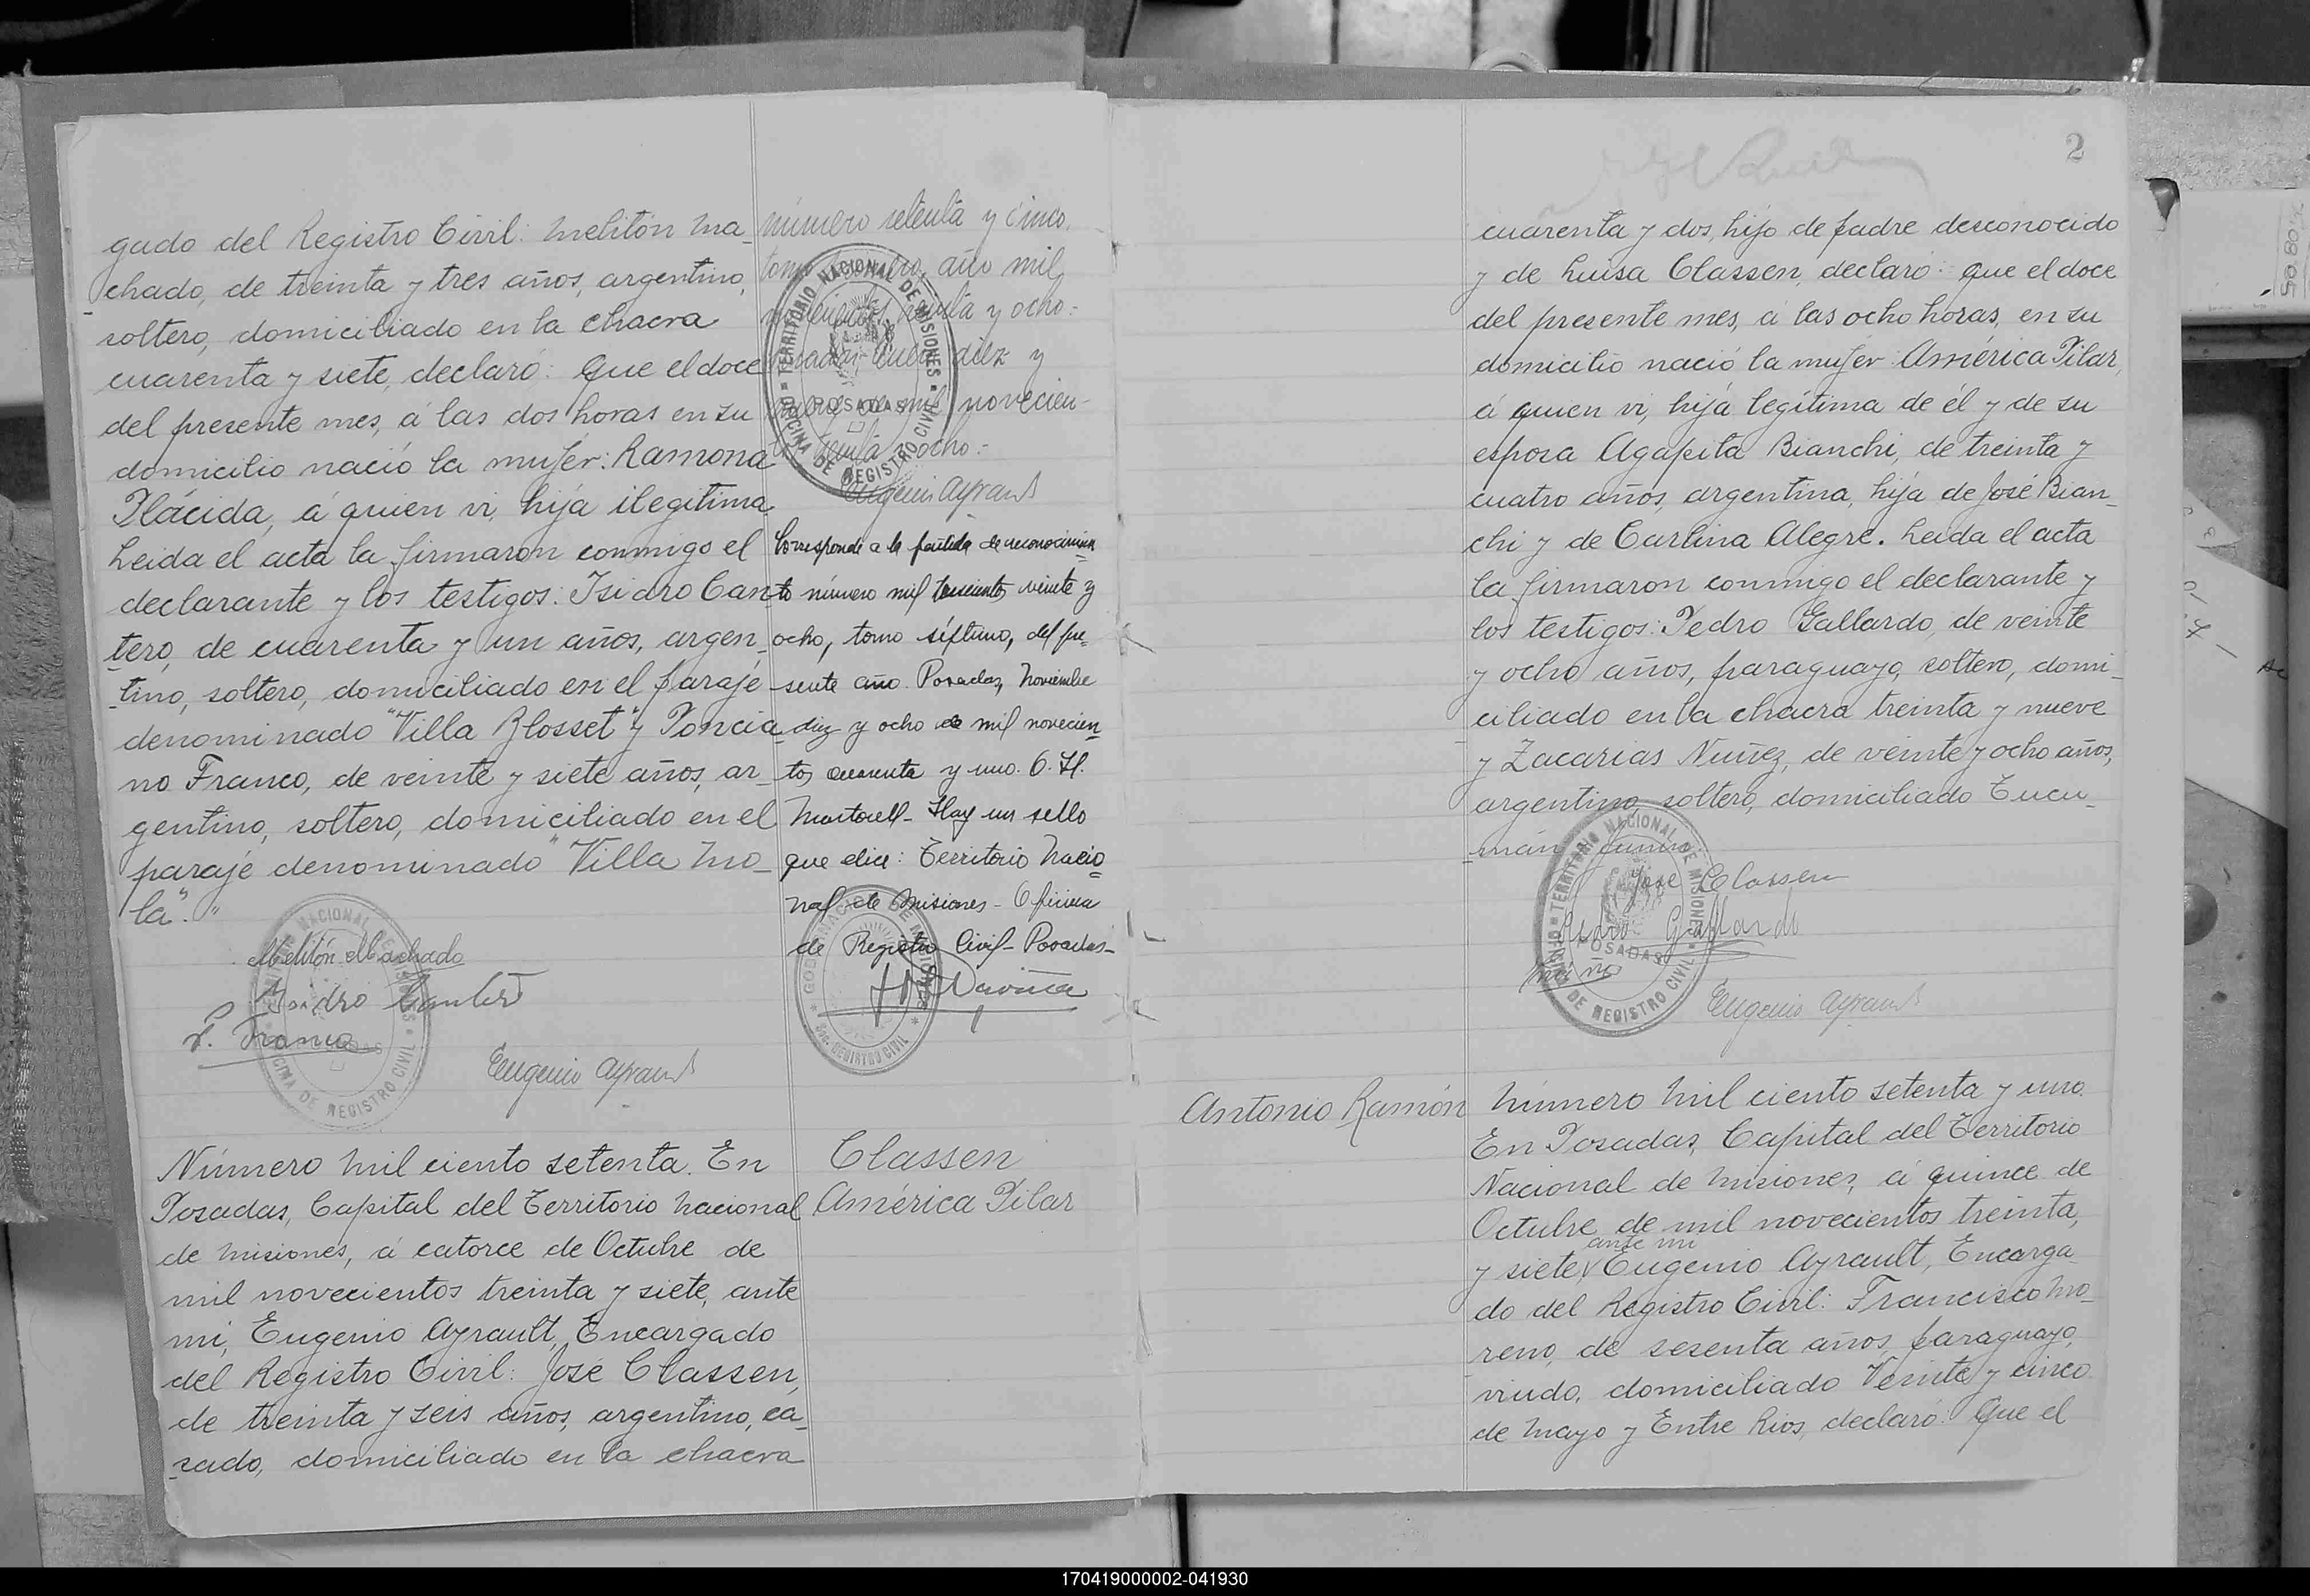 gado del Registro Civil: Melitón Ma_
chado, de treinta y tres años, argentino,
soltero, domiciliado en la chacra
cuarenta y siete, declaró: Que el doce
del presente mes, á las dos horas en su
domicilio nació la mujer: Ramona
Plácida, á quien vi, hija ilegitima.
Leida el acta la firmaron conmigo el
declarante y los testigos: Isidro Can_
tero, de cuarenta y un años, argen_
tino, soltero, domiciliado en el paraje
denominado "Villa Blosset" y Poncia_
no Franco, de veinte y siete años, ar_
gentino, soltero, domiciliado en el
paraje denominado "Villa Mo_
la"."
Melitón Machado
Isidro Cantero
P. Franco
Eugenio Ayrault
número setenta y cinco,
tomo año mil
y ocho:-
diez y
de mil novecien-
y ocho:-
Eugenio Ayrault
Corresponde a la partida de reconocimien_
to número mil trescientos veinte y
ocho, tomo séptimo, del pre_
sente año. Posadas, Noviembre
diez y ocho de mil novecien_
tos cuarenta y uno. O. H.
Martorell- Hay un sello
que dice: Territorio Nacio_
nal de Misiones- Oficina
de Registro Civil- Posadas-
TERRITORIO NACIONAL DE MISIONES
POSADAS
OFICINA DE REGISTRO CIVIL
GOBERNACION DE MISIONES
REGISTRO CIVIL
Número mil ciento setenta. En
Posadas, Capital del Territorio Nacional
de Misiones, á catorce de Octubre de
mil novecientos treinta y siete, ante
mi, Eugenio Ayrault, Encargado
del Registro Civil: José Classen,
de treinta y seis años, argentino, ca_
sado, domiciliado en la chacra
Classen
América Pilar
2
cuarenta y dos, hijo de padre desconocido
y de Luisa Classen, declaró: que el doce
del presente mes, á las ocho horas, en su
domicilio nació la mujer: América Pilar,
á quien vi, hija legítima de él y de su
esposa Agapita Bianchi, de treinta y
cuatro años, argentina, hija de José Bian_
chi y de Carlina Alegre. Leida el acta
la firmaron conmigo el declarante y
los testigos: Pedro Gallardo, de veinte
y ocho años, paraguayo, soltero, domi_
ciliado en la chacra treinta y nueve
y Zacarias Nuñez, de veinte y ocho años,
argentino, soltero, domiciliado Tucu_
mán y Junin.
José Classen
Pedro Gallardo
Eugenio Ayrault
TERRITORIO NACIONAL DE MISIONES
POSADAS
OFICINA DE REGISTRO CIVIL
Antonio Ramón
Número mil ciento setenta y uno.
En Posadas, Capital del Territorio
Nacional de Misiones, á quince de
Octubre de mil novecientos treinta,
ante mi
y siete, Eugenio Ayrault, Encarga_
do del Registro Civil: Francisco Mo_
reno, de sesenta años, paraguayo,
viudo, domiciliado Veinte y cinco
de Mayo y Entre Rios, declaró: Que el
170419000002-041930